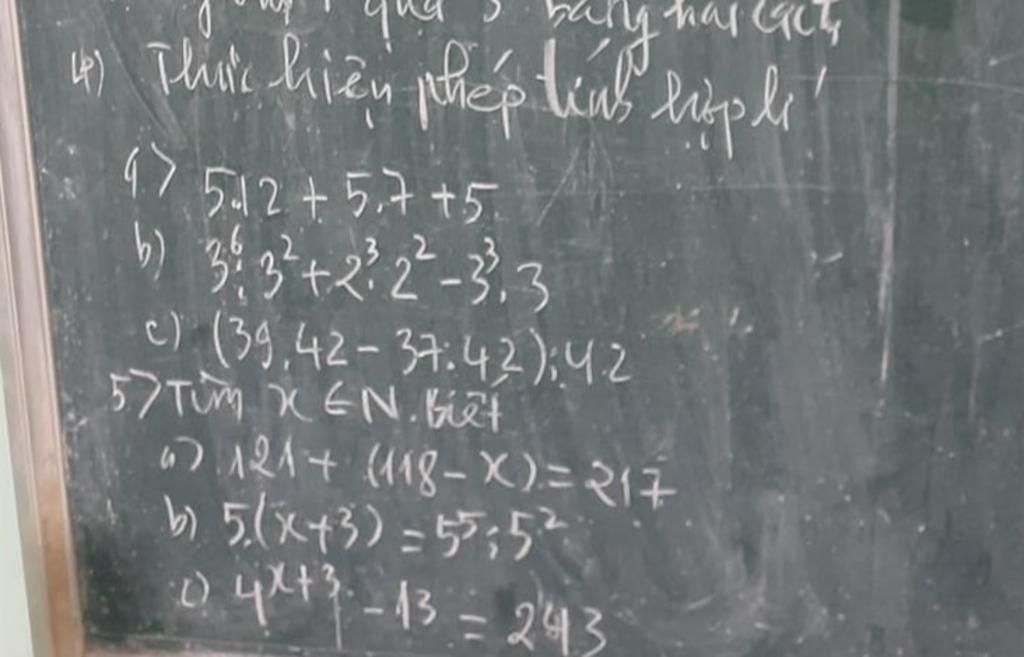 quả 3 bằng hai cách
4) Thực hiện phép tính hợp lí
a) 5.12 + 5.7 + 5
b) 3⁶:3² + 2³.2² - 3³.3
c) (39.42 - 37.42):42
5) Tìm x ∈ N. biết
a) 121 + (118 - x) = 217
b) 5.(x+3) = 5⁵:5²
c) 4ˣ⁺³ - 13 = 243